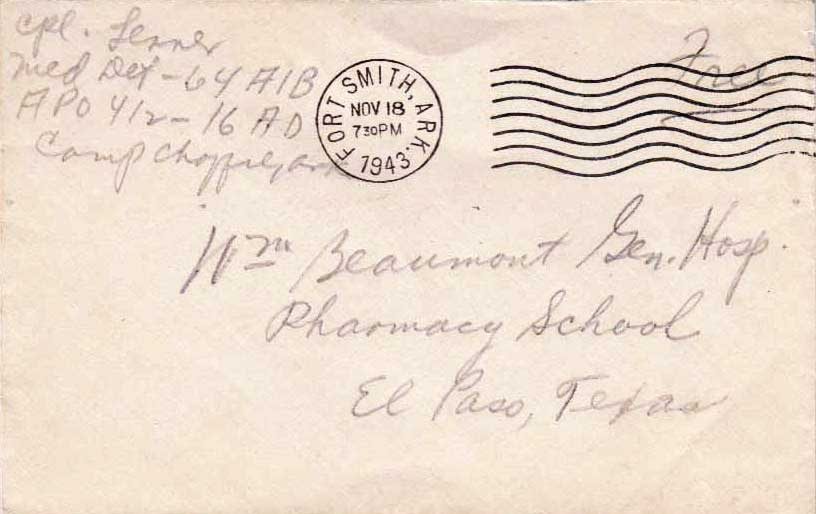 Cpl. Lerner
Med Det - 64 AIB
APO 412 - 16 AD
Camp Chaffee, Ark
FORT SMITH, ARK.
NOV 18
730PM
1943
Free
Wm Beaumont Gen. Hosp.
Pharmacy School
El Paso, Texas